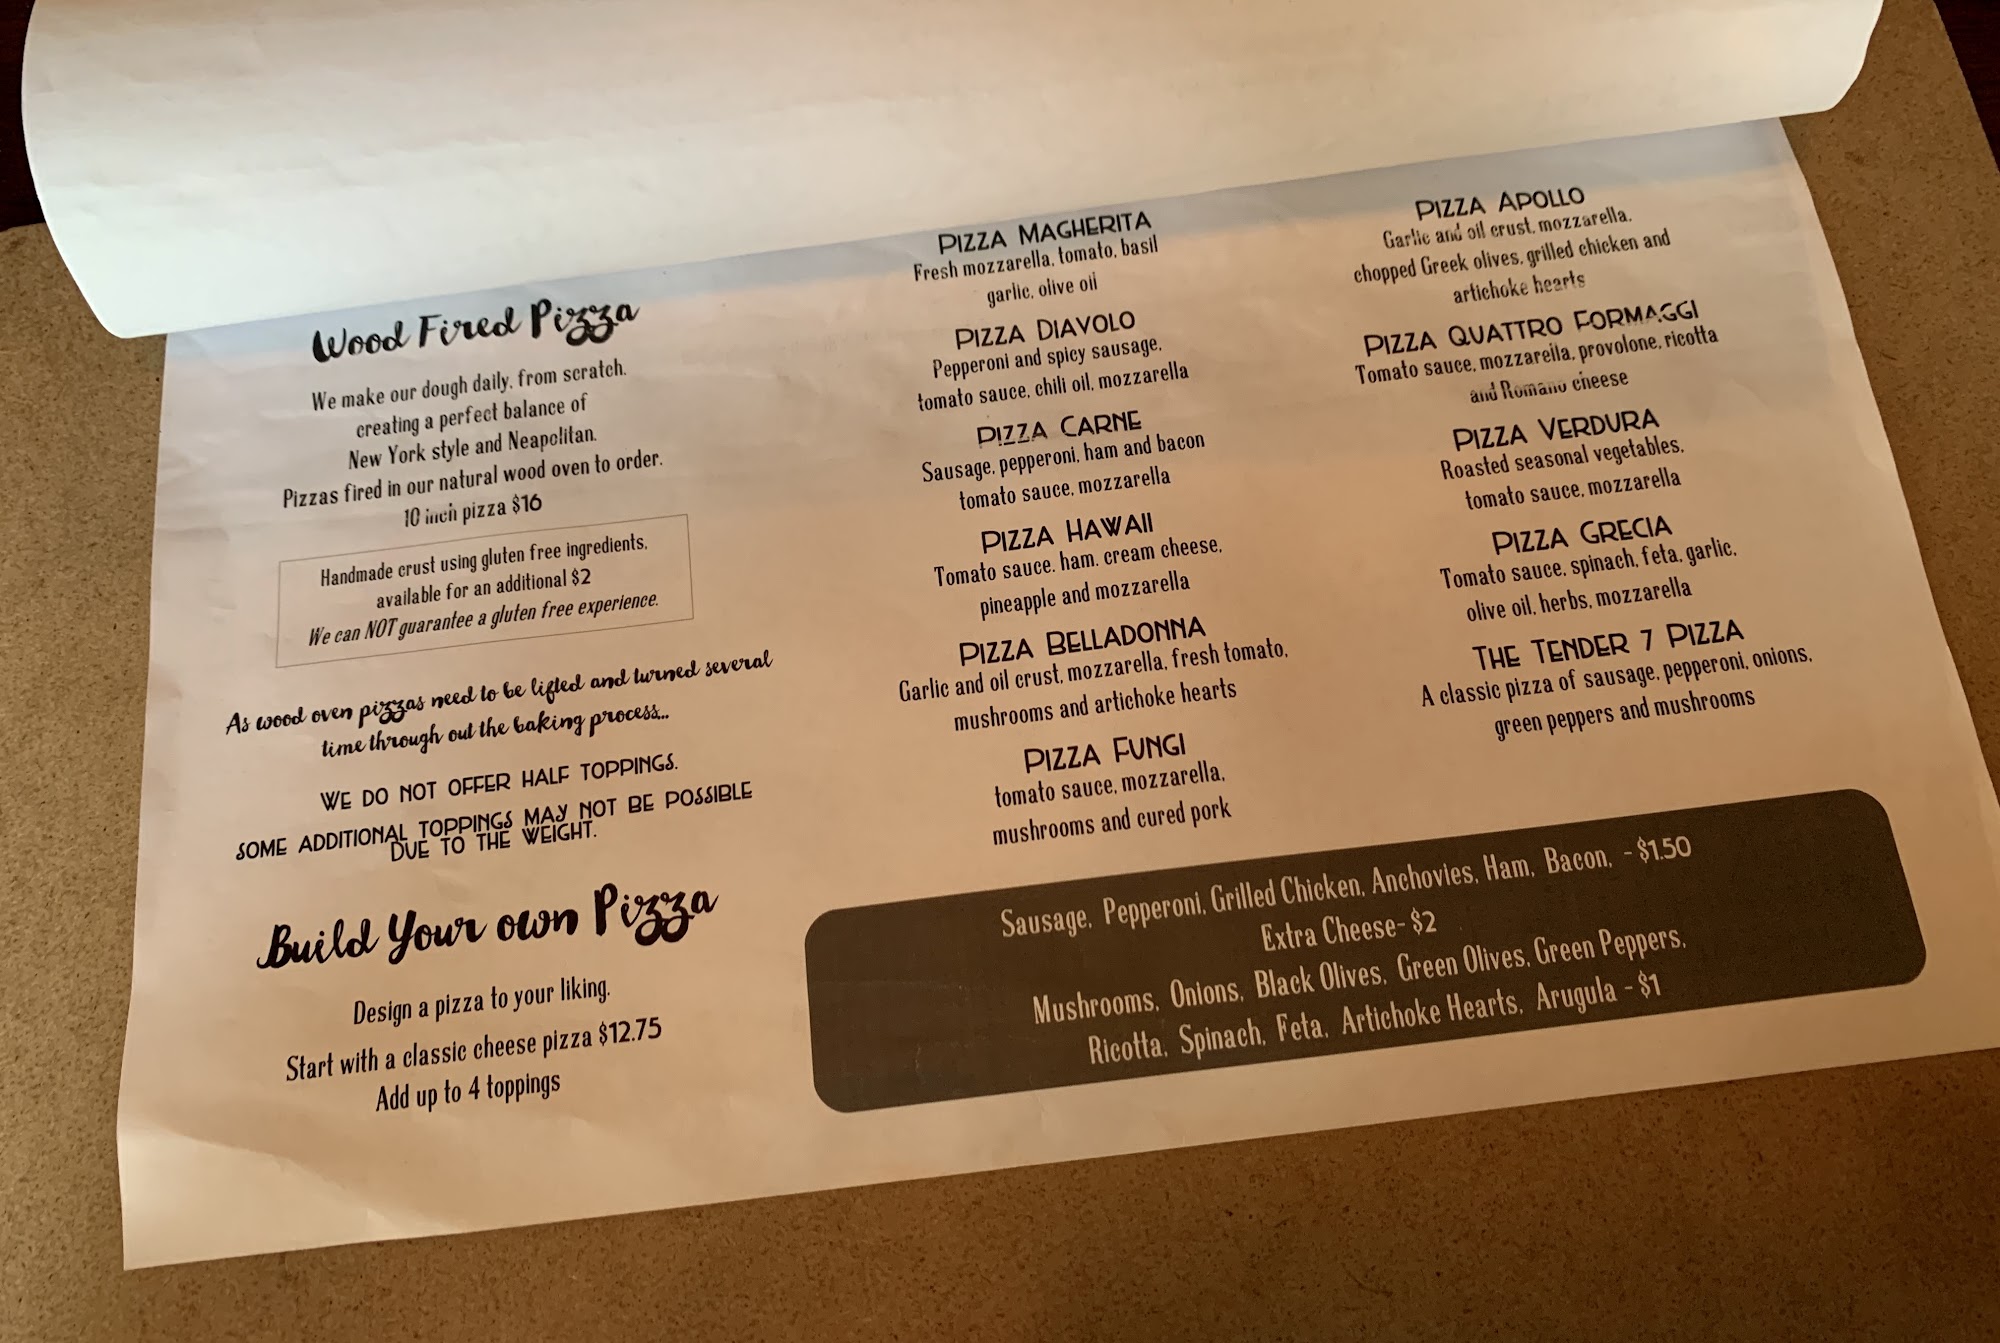 Wood Fired Pizza
We make our dough daily, from scratch,
creating a perfect balance of
New York style and Neapolitan.
Pizzas fired in our natural wood oven to order.
10 inch pizza $16
Handmade crust using gluten free ingredients,
available for an additional $2
We can NOT guarantee a gluten free experience.
As wood oven pizzas need to be lifted and turned several
time through out the baking process...
WE DO NOT OFFER HALF TOPPINGS.
SOME ADDITIONAL TOPPINGS MAY NOT BE POSSIBLE
DUE TO THE WEIGHT.
Build Your own Pizza
Design a pizza to your liking.
Start with a classic cheese pizza $12.75
Add up to 4 toppings
PIZZA MAGHERITA
Fresh mozzarella, tomato, basil
garlic, olive oil
PIZZA DIAVOLO
Pepperoni and spicy sausage,
tomato sauce, chili oil, mozzarella
PIZZA CARNE
Sausage, pepperoni, ham and bacon
tomato sauce, mozzarella
PIZZA HAWAII
Tomato sauce, ham, cream cheese,
pineapple and mozzarella
PIZZA BELLADONNA
Garlic and oil crust, mozzarella, fresh tomato,
mushrooms and artichoke hearts
PIZZA FUNGI
tomato sauce, mozzarella,
mushrooms and cured pork
PIZZA APOLLO
Garlic and oil crust, mozzarella,
chopped Greek olives, grilled chicken and
artichoke hearts
PIZZA QUATTRO FORMAGGI
Tomato sauce, mozzarella, provolone, ricotta
and Romano cheese
PIZZA VERDURA
Roasted seasonal vegetables,
tomato sauce, mozzarella
PIZZA GRECIA
Tomato sauce, spinach, feta, garlic,
olive oil, herbs, mozzarella
THE TENDER 7 PIZZA
A classic pizza of sausage, pepperoni, onions,
green peppers and mushrooms
Sausage, Pepperoni, Grilled Chicken, Anchovies, Ham, Bacon, - $1.50
Extra Cheese- $2
Mushrooms, Onions, Black Olives, Green Olives, Green Peppers,
Ricotta, Spinach, Feta, Artichoke Hearts, Arugula - $1